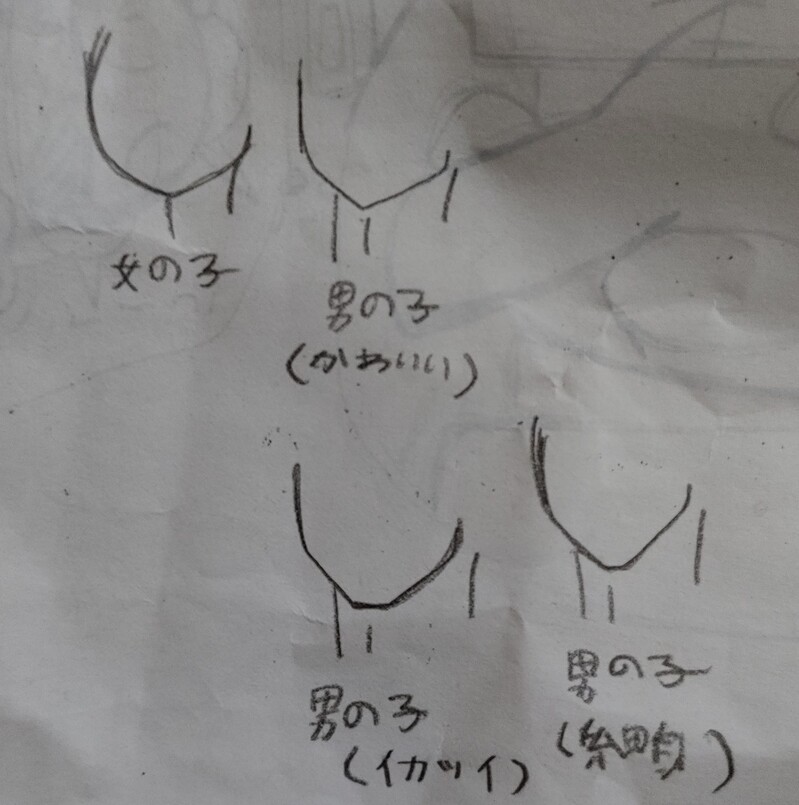 女の子
男の子
(かわいい)
男の子
(イカツイ)
男の子
(細身)